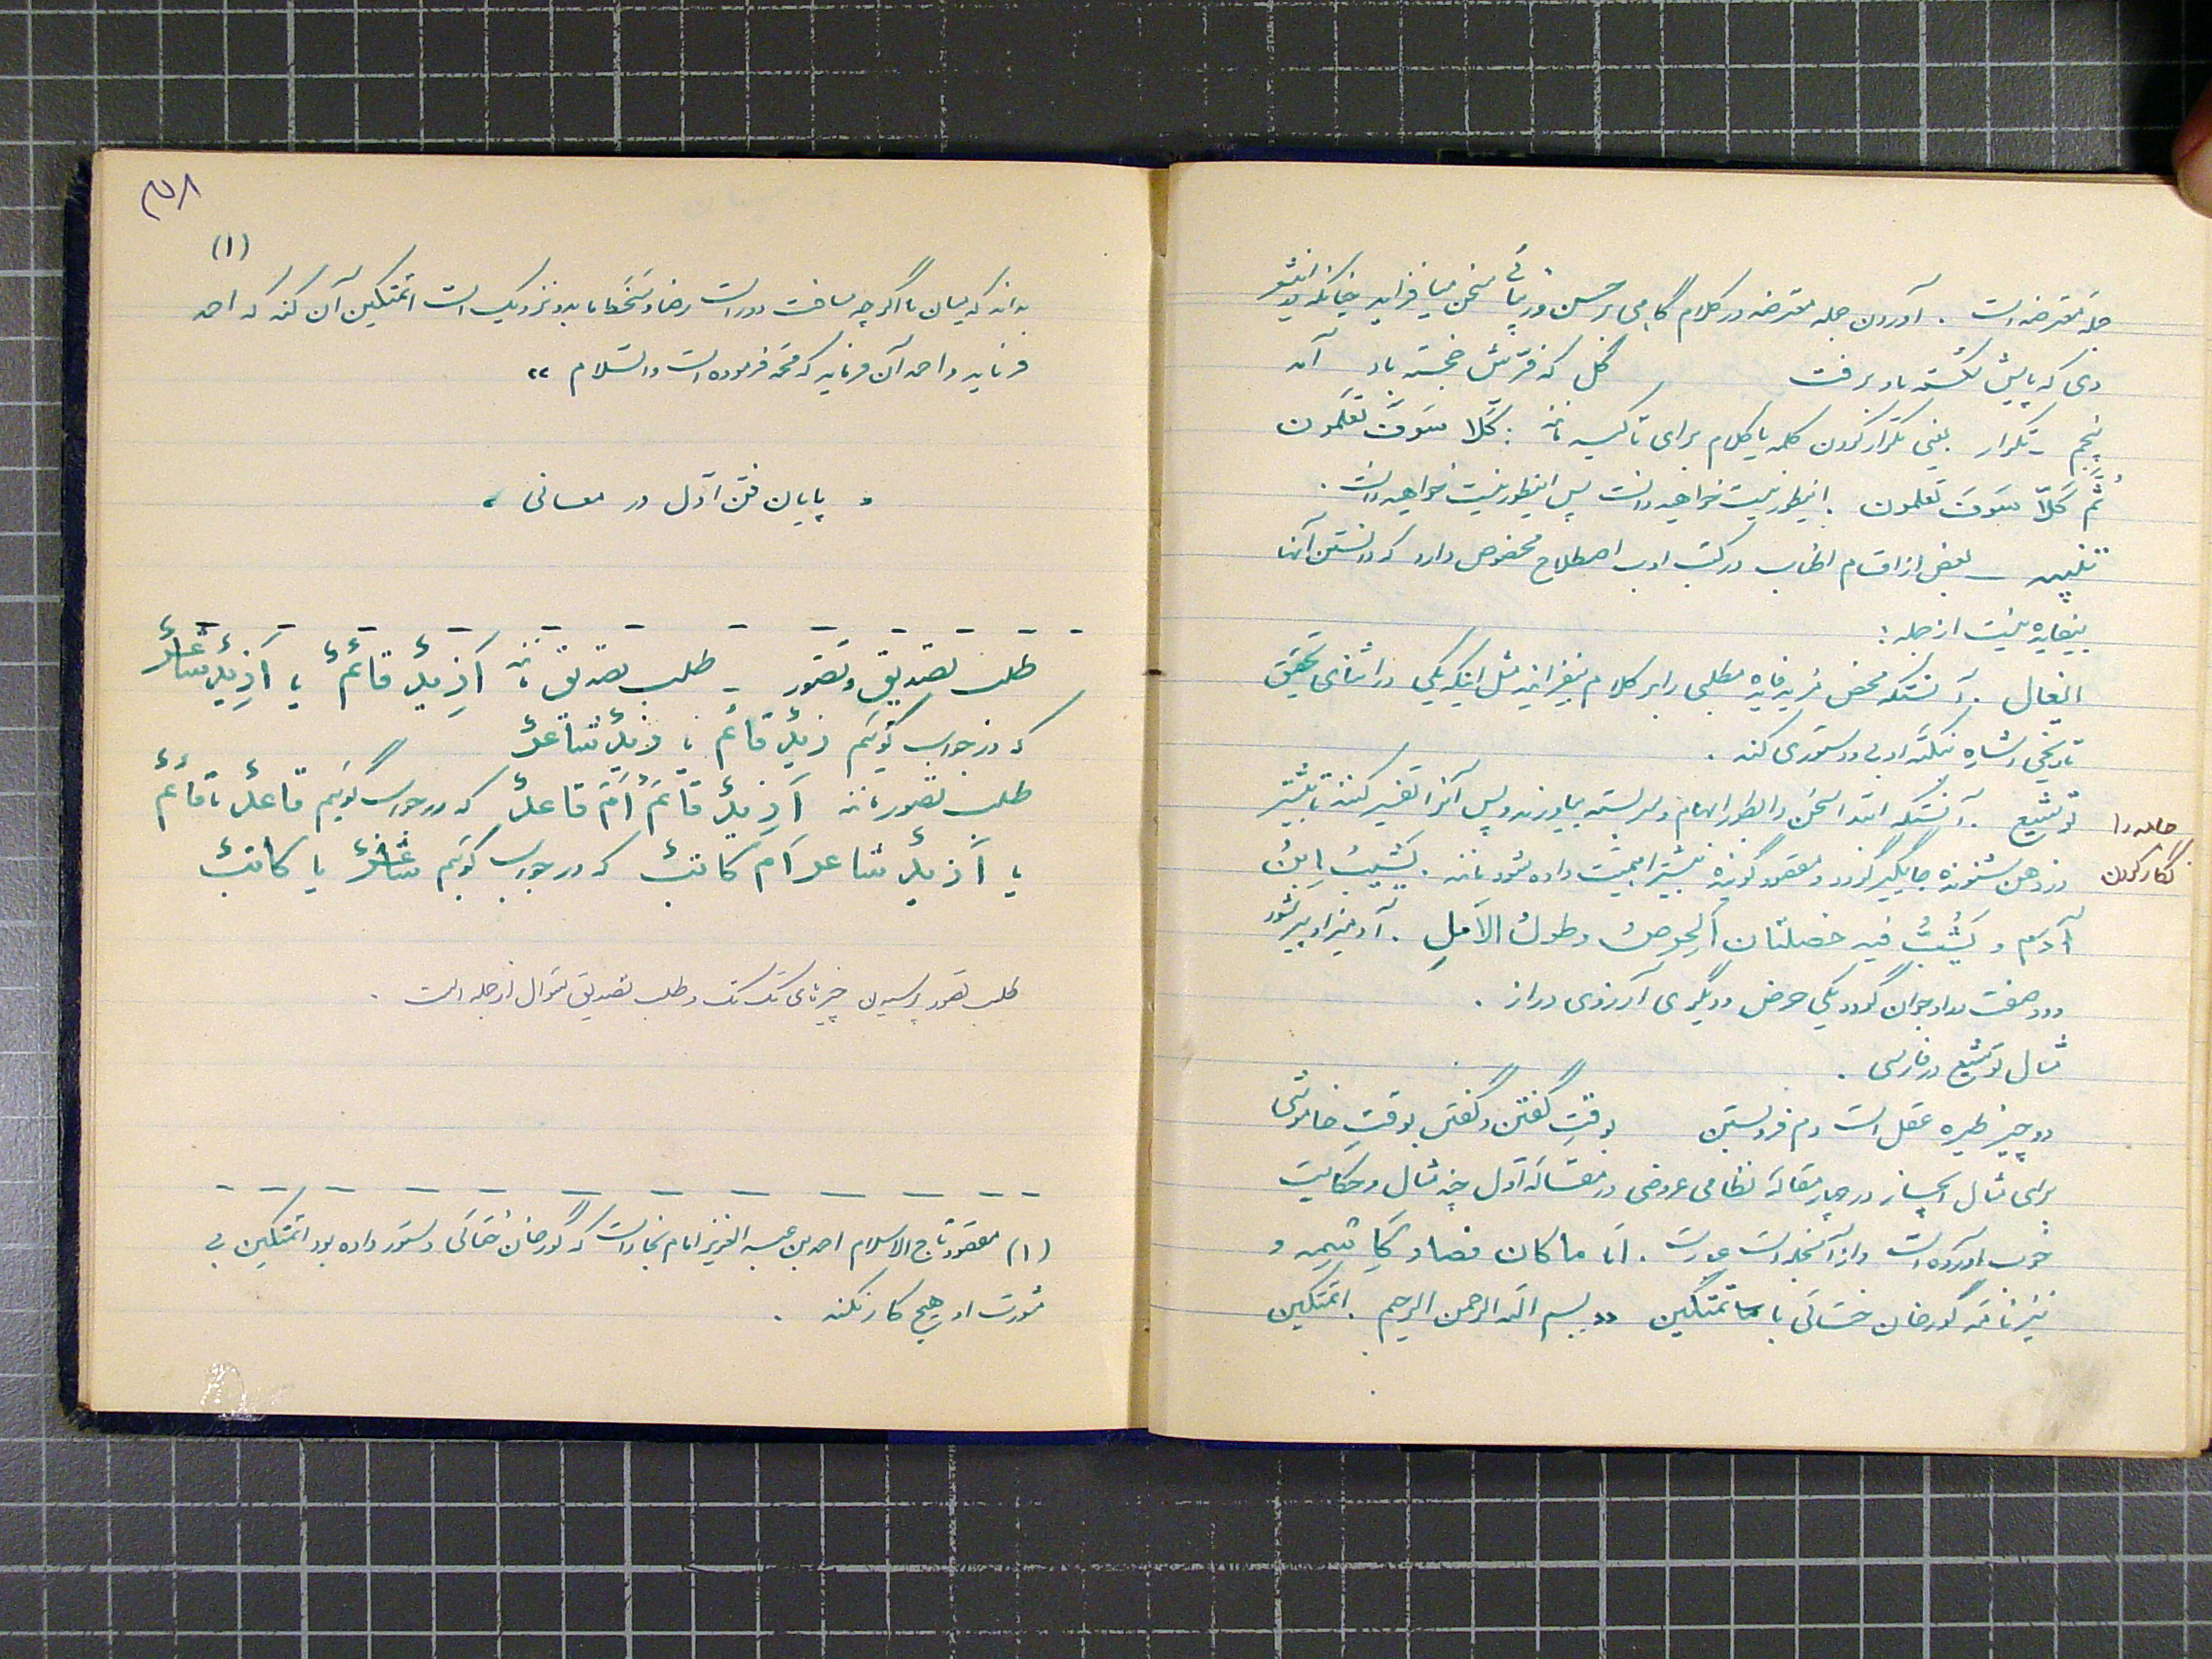 جمله معترضه است . آوردن جمله معترضه در کلام گاهی بر حسن و زیبائی سخن میافزاید چنانکه در این شعر
دی که پایش شکسته باد برفت گل که عمرش خجسته باد آمد
پنجم - تکرار یعنی تکرار کردن کلمه یا کلام برای تاکید مانند : کَلّا سَوفَ تَعلَمون
ثُمَّ کَلّا سَوفَ تَعلمون . اینطور نیست خواهید دانست پس اینطور نیست خواهید دانست .
تنبیه - بعض از اقسام اطناب در کتب ادب اصطلاح مخصوص دارد که دانستن آنها
بیفایده نیست از جمله :
ایغال . آنستکه محض مزید فایده مطلبی را بر کلام بیفزایند مثل اینکه یکی در اثنای تحقیق
تاریخی اشاره بنکته ادبی و دستوری کند .
توشیع . آنستکه ابتدا سخن را بطور ابهام و سربسته بیاورند و پس آنرا تفسیر کنند تا بیشتر
در ذهن شنونده جایگیر گردد و مقصود گوینده بیشتر اهمیت داده شود مانند . یَشیبُ اِبنُ
آدم و یَشُبُّ فیه خصلتان اَلحِرصُ و طولُ الاَمَلِ . آدمیزاد پیر شود
و دو صفت در او جوان گردد یکی حرص و دیگری آرزوی دراز .
مثال توشیع در فارسی .
دو چیز طیره عقل است دم فرو بستن بوقتِ گفتن و گفتن بوقتِ خاموشی
برای مثال ایجاز در چهار مقاله نظامی عروضی در مقاله اول چند مثال و حکایت
خوب آورده است و از آنجمله است عبارت . امّا ما کان فصار کَاَ تیمِه و
نیز نامه گورخان ختائی با تمتگین «بسم الله الرحمن الرحیم . اتمتگین
جامه را
نگار کردن
(۱)
بداند که میان ما اگر چه مسافت دور است رضا و سَخَط ما بدو نزدیک است اتمتگین آن کند که احمد
فرماید و احمد آن فرماید که محمد فرموده است و السّلام »
« پایان فنّ اوّل در معانی »
طلب تصدیق و تصور - طلب تصدیق مانند اَزیدٌ قائمٌ یا اَزیدٌ شاعرٌ
که در جواب گوئیم زیدٌ قائم یا زیدٌ شاعرٌ
طلب تصور مانند اَزیدٌ قائمٌ اَم قاعدٌ که در جواب گوئیم قاعدٌ یا قائمٌ
یا اَزیدٌ شاعر اَم کاتبٌ که در جواب گوئیم شاعرٌ یا کاتبٌ
طلب تصور پرسیدن چیزهای تک تک و طلب تصدیق سؤال از جمله است .
(۱) مقصود تاج الاسلام احمد بن عبد العزیز امام بخارا است که گورخان ختائی دستور داده بود اتمتگین بی
مشورت او هیچ کار نکند .